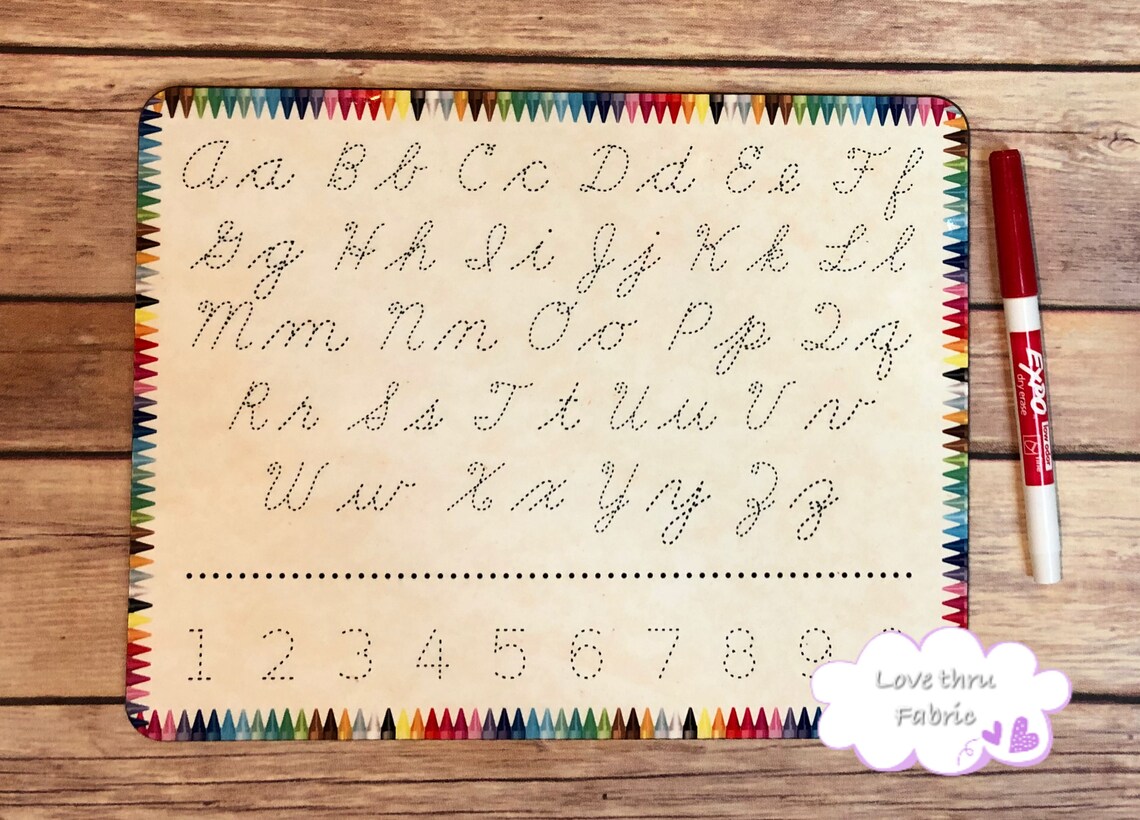 Aa Bb Cc Dd Ee Ff
Gg Hh Ii Jj Kk Ll
Mm Nn Oo Pp Qq
Rr Ss Tt Uu Vv
Ww Xx Yy Zz
1 2 3 4 5 6 7 8 9
EXPO
dry erase
low odor
Love thru
Fabric